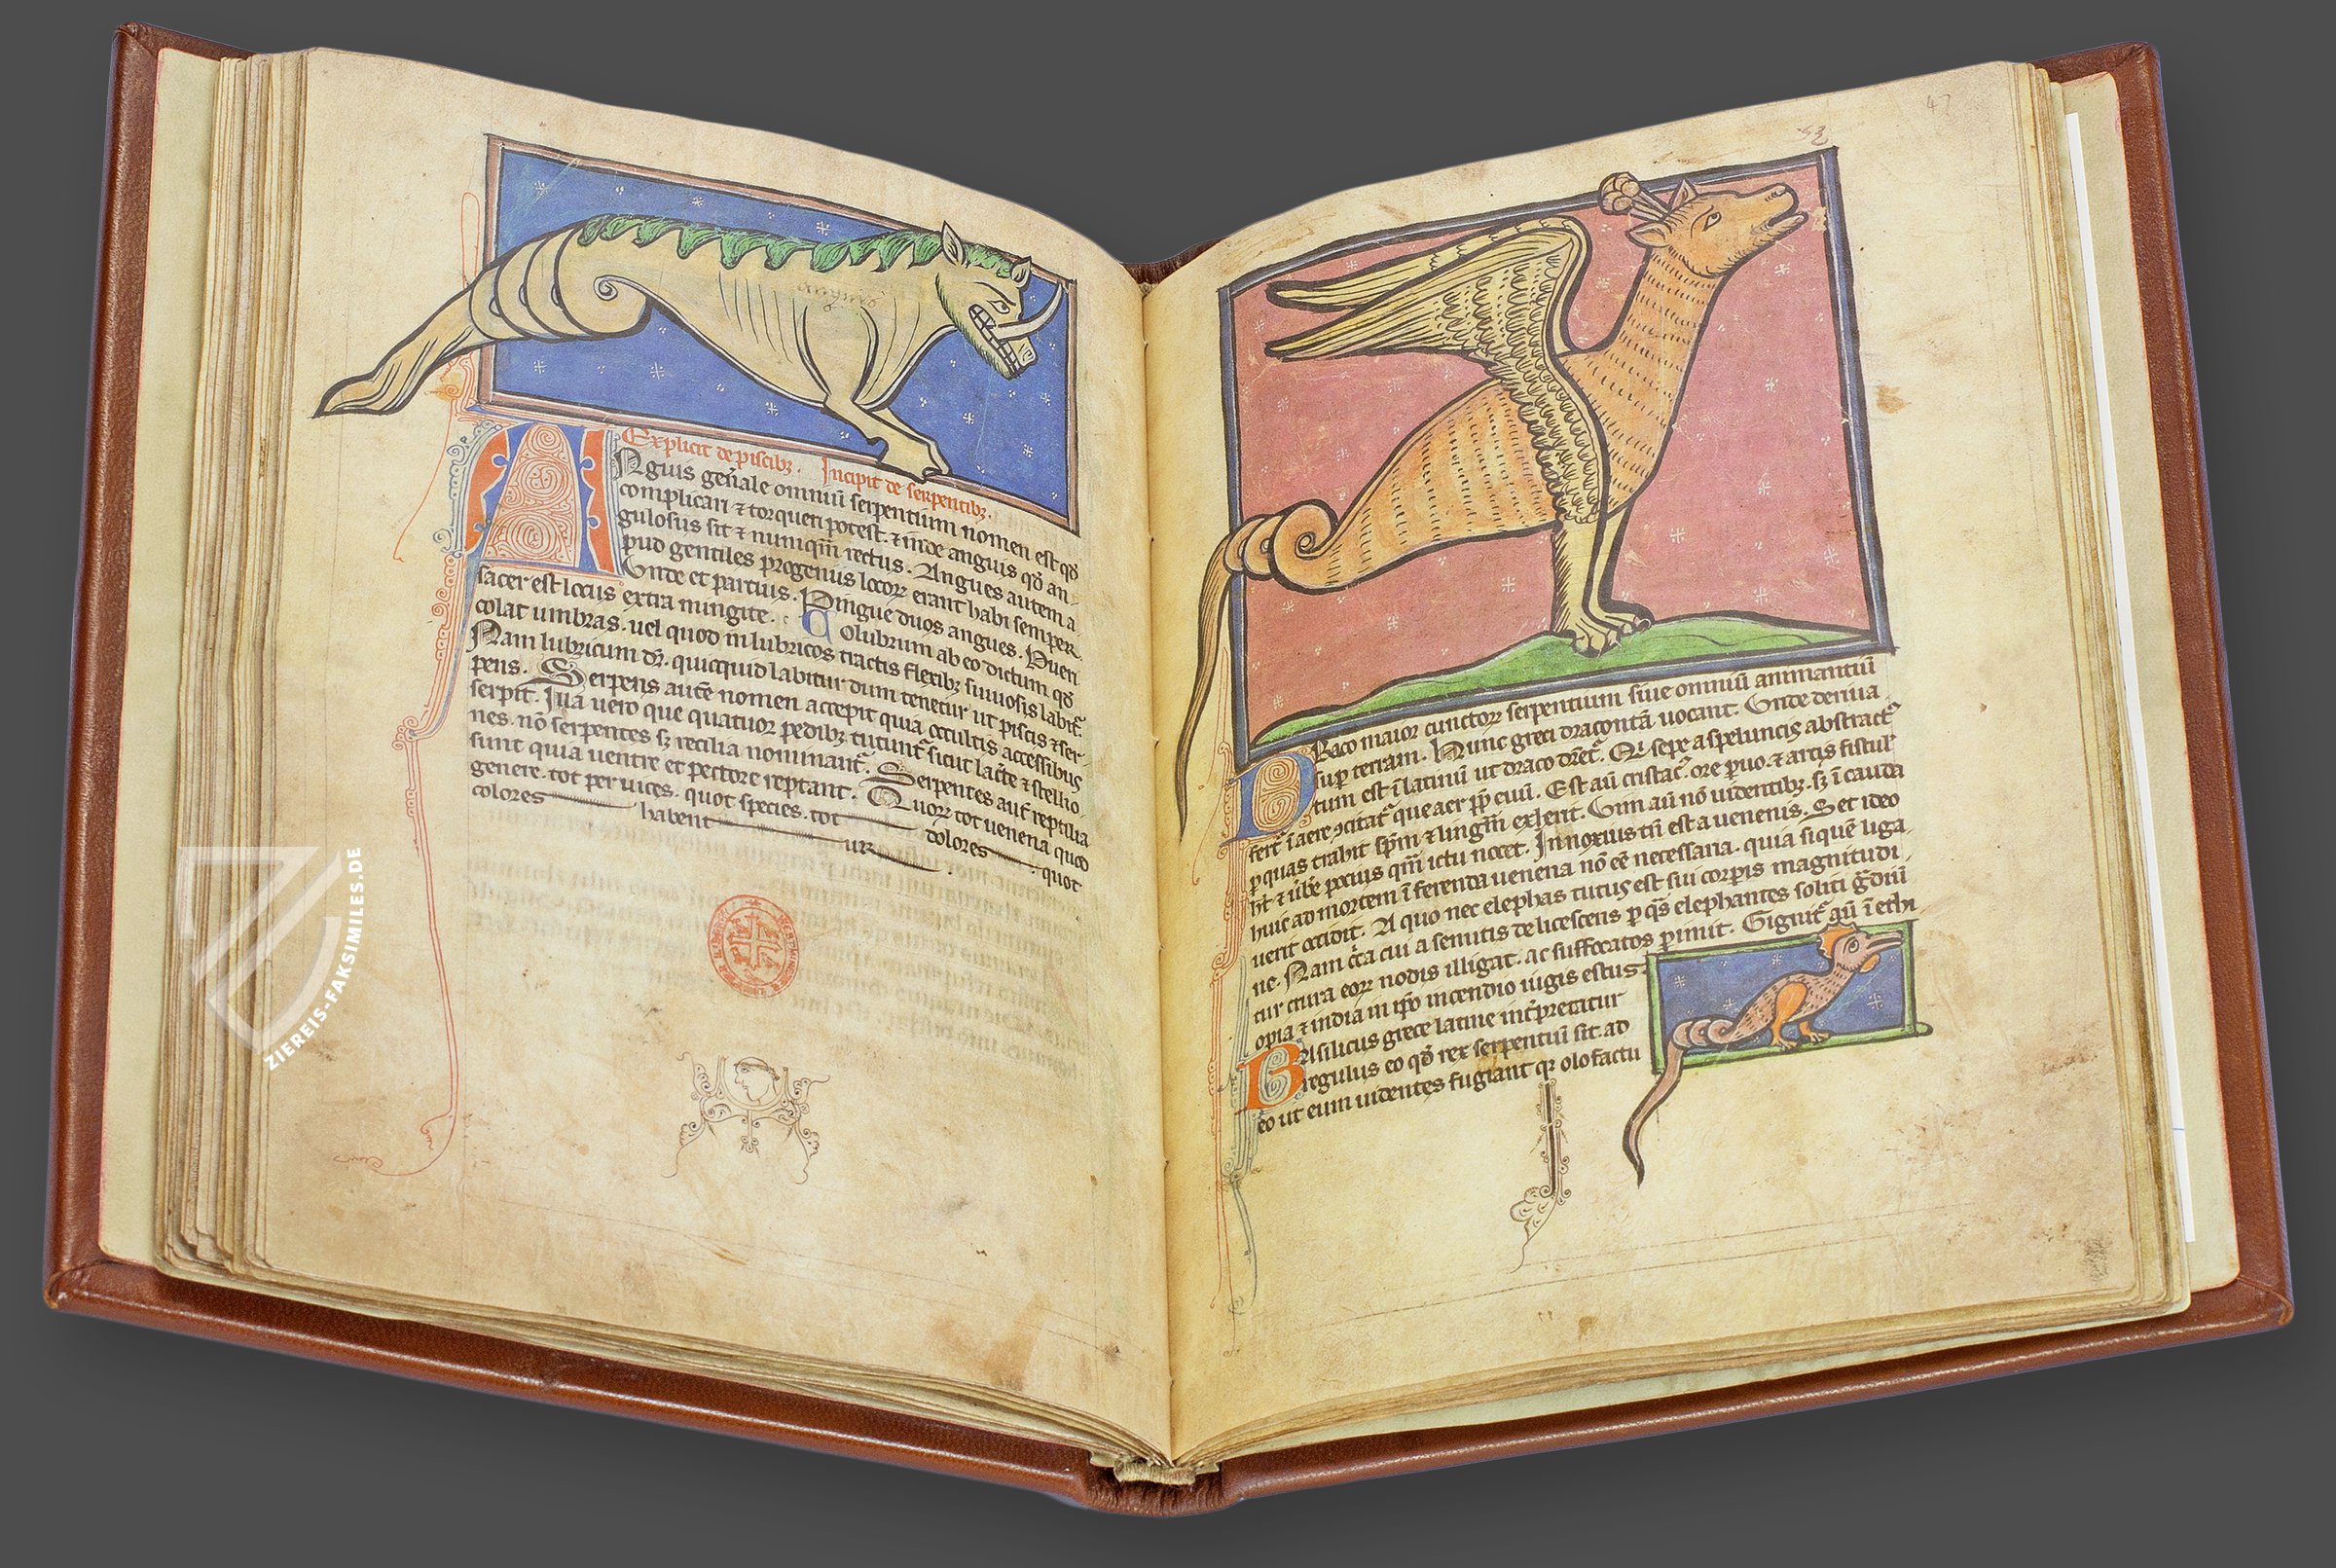 Explicit de piscibꝫ. Incipit de serpentibꝫ.
Anguis geñale omniū serpentium nomen est qđ
complicari ⁊ torqueri potest. ⁊ inde anguis qđ an-
gulosus sit ⁊ numqm̄ rectus. Angues autem a-
pud gentiles progenius locoꝝ erant habi semper.
Vnde et partius. Pingue duos angues. Pueri
sacer est locus extra mingite. Colubrum ab eo dictum qđ
colat umbras. uel quod in lubricos tractis flexibꝫ sinuosis labit᷑.
Nam lubricum dr̄. quicquid labitur dum tenetur ut piscis ⁊ ser-
pens. Serpens autē nomen accepit quia occultis accessibus
serpit. Illa uero que quatuor pedibꝫ nitunt᷑ sicut lac̄te ⁊ stellio-
nes. nō serpentes sꝫ reptilia nominant᷑. Serpentes aut̄ reptilia
sunt quia uentre et pectore reptant. Quoꝝ tot uenena quod
genere. tot per uices. quot species. tot dolores quot
colores habent ur
47
Draco maior cunctoꝝ serpentium siue omniū animantiū
sup̄ terram. Hunc greci dracontā uocant. Vnde deriua
tum est ī latinū ut draco dr̄et᷑. Qi sepe a speluncis abstract᷒
fert᷑ ī aere ꝯcitat᷑ que aer ꝓp̄ euū. Est aū cristat᷒. ore ꝑuo. ⁊ artis fistul᷑
ꝑ quas trahit sp̄m ⁊ lingm̄ exerit. Vim aū nō ī dentibꝫ. sꝫ ī cauda
ht̄ ⁊ ūbe pocius qm̄ ictu nocet. Innoxius tn̄ est a uenenis. Set ideo
huic ad mortem ī ferenda uenena nō eē necessaria. quia si quē liga
uerit occidit. A quo nec elephas tutus est sui corpis magnitudi
ne. Nam cc̄a cui a semitis delicescens ꝑ qs̄ elephantes soliti ḡdiūt
tur crura eoꝝ nodis illigat. ac suffocatos ꝑimit. Gignit᷑ aū ī ethi
opia ⁊ india in ipo incendio iugis estus.
Basilicus grece latine int̄pretatur
regulus eo qđ rex serpentiū sit. ad
eo ut eum uidentes fugiant qꝛ olofactu
ZIEREIS-FAKSIMILES.DE